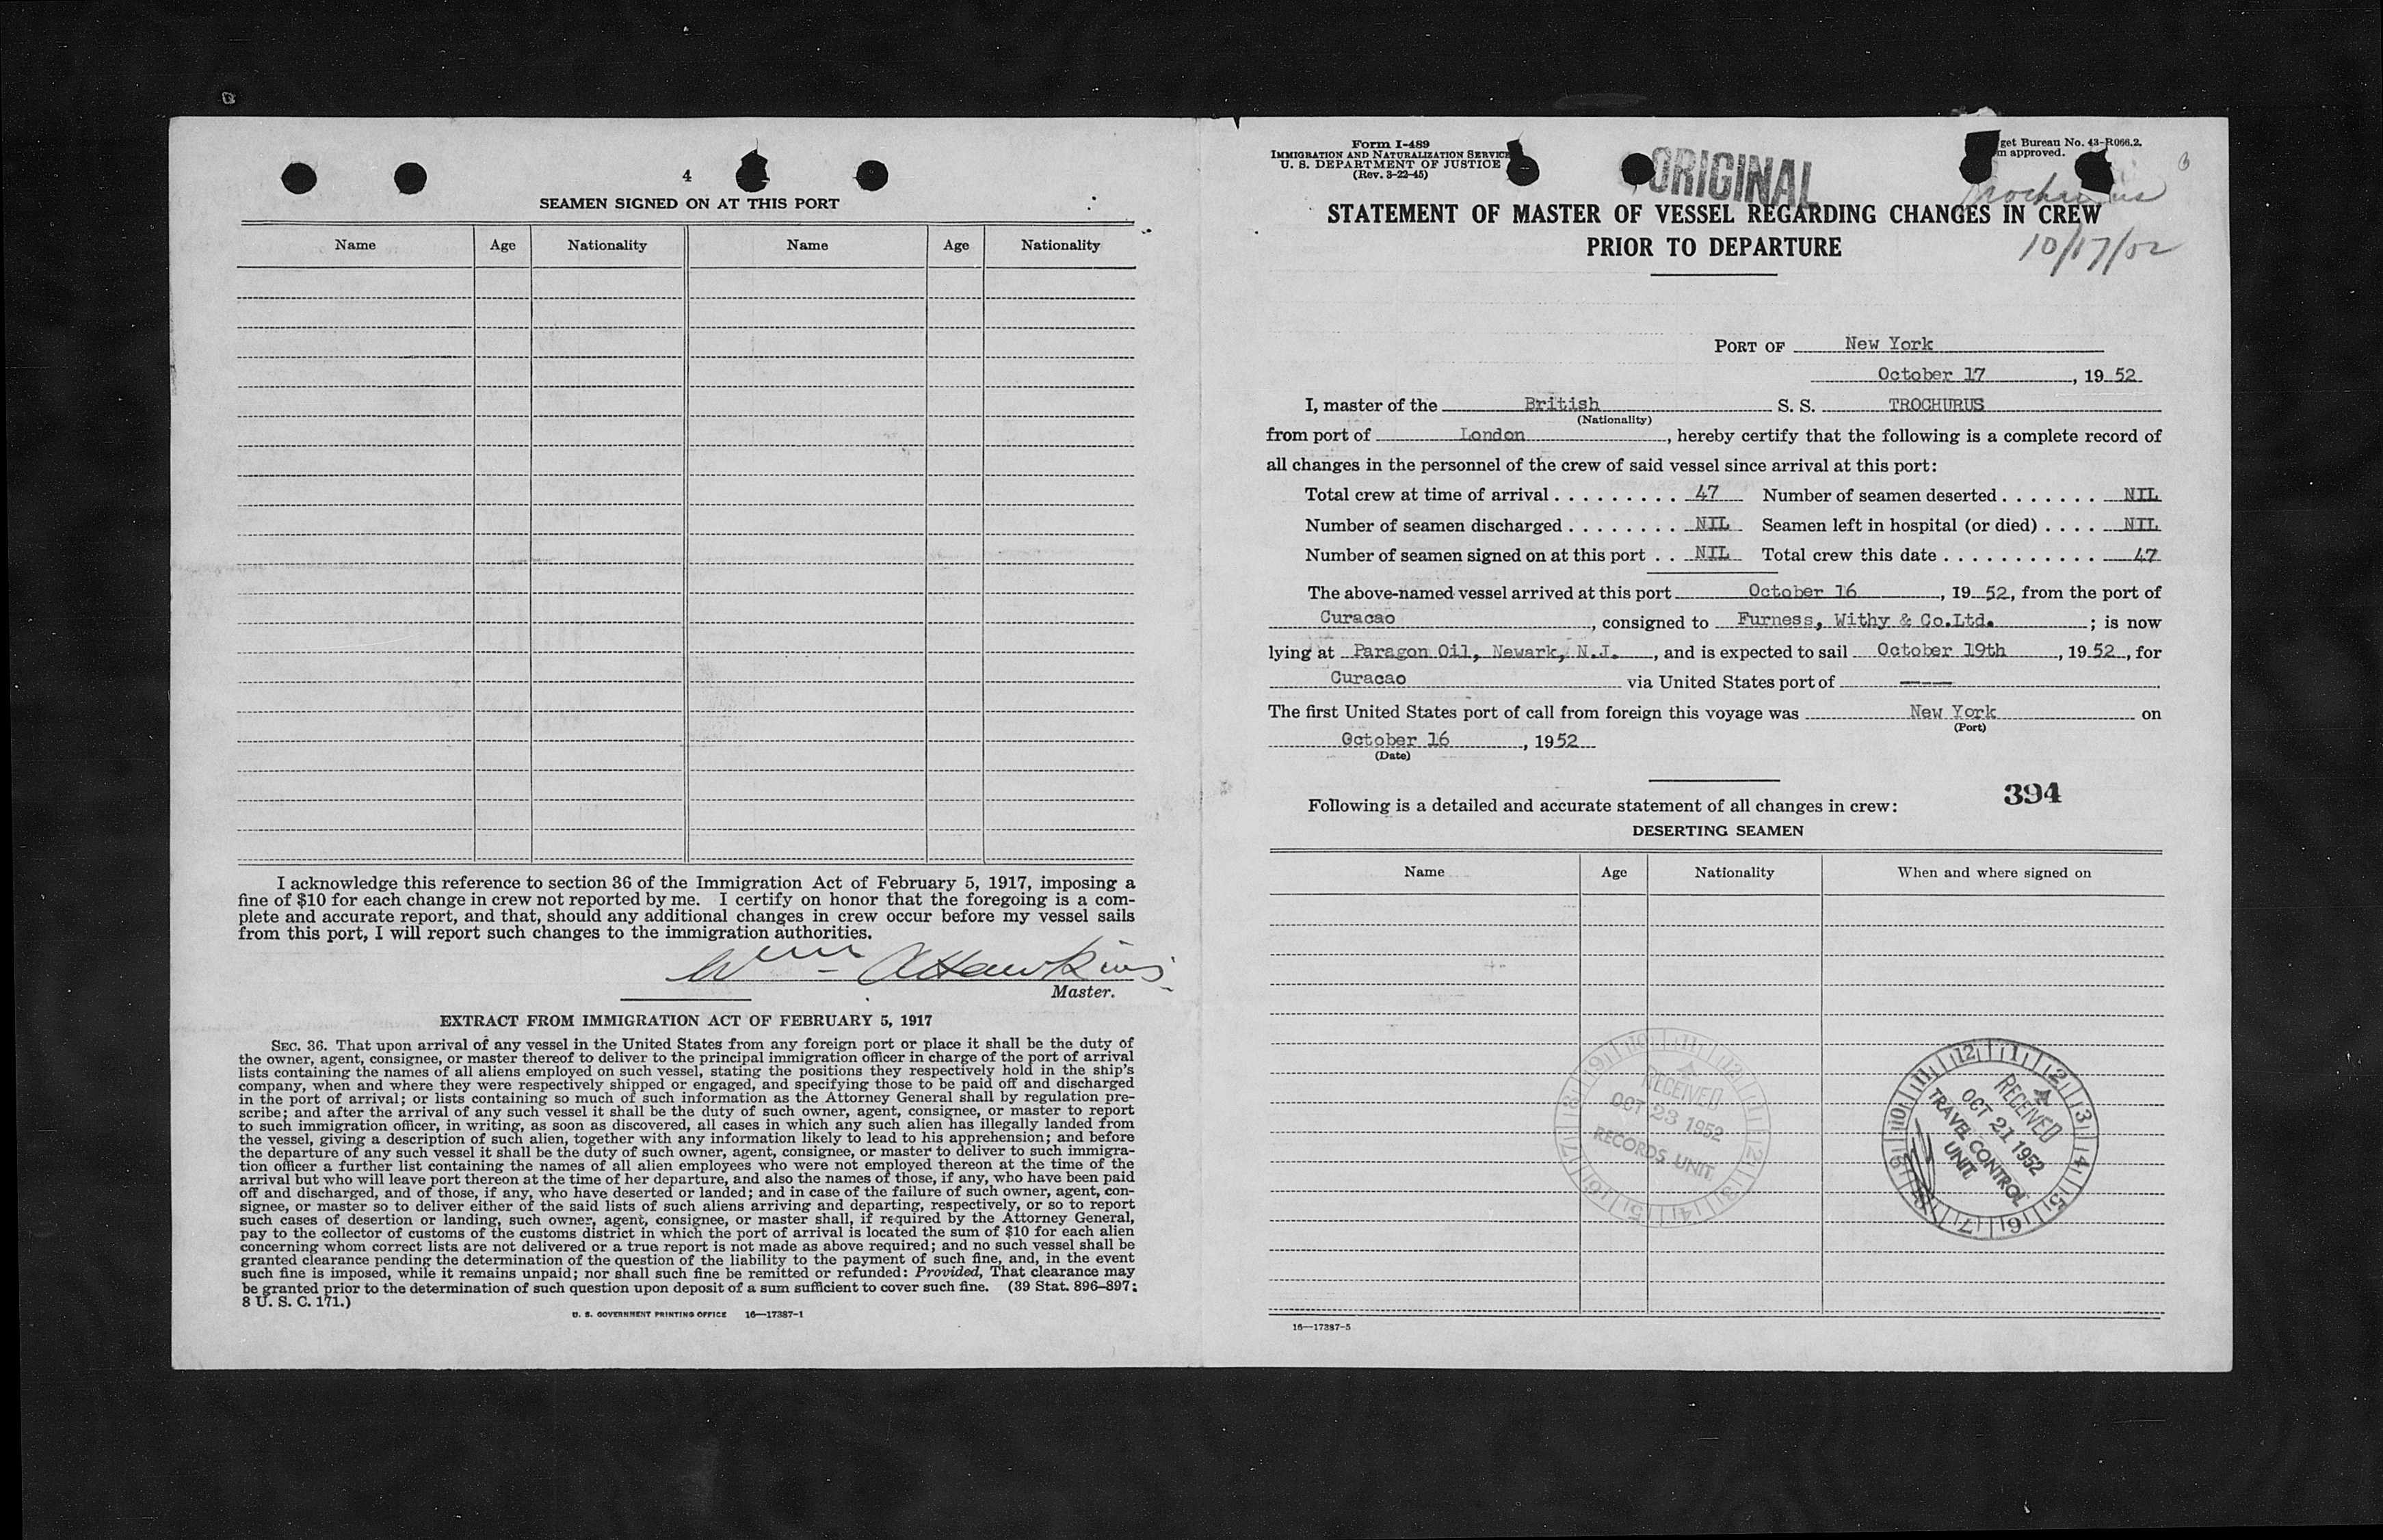 4
SEAMEN SIGNED ON AT THIS PORT
Name Age Nationality Name Age Nationality
I acknowledge this reference to section 36 of the Immigration Act of February 5, 1917, imposing a
fine of $10 for each change in crew not reported by me. I certify on honor that the foregoing is a com-
plete and accurate report, and that, should any additional changes in crew occur before my vessel sails
from this port, I will report such changes to the immigration authorities.
Wm A Hawkins
Master.
EXTRACT FROM IMMIGRATION ACT OF FEBRUARY 5, 1917
SEC. 36. That upon arrival of any vessel in the United States from any foreign port or place it shall be the duty of
the owner, agent, consignee, or master thereof to deliver to the principal immigration officer in charge of the port of arrival
lists containing the names of all aliens employed on such vessel, stating the positions they respectively hold in the ship's
company, when and where they were respectively shipped or engaged, and specifying those to be paid off and discharged
in the port of arrival; or lists containing so much of such information as the Attorney General shall by regulation pre-
scribe; and after the arrival of any such vessel it shall be the duty of such owner, agent, consignee, or master to report
to such immigration officer, in writing, as soon as discovered, all cases in which any such alien has illegally landed from
the vessel, giving a description of such alien, together with any information likely to lead to his apprehension; and before
the departure of any such vessel it shall be the duty of such owner, agent, consignee, or master to deliver to such immigra-
tion officer a further list containing the names of all alien employees who were not employed thereon at the time of the
arrival but who will leave port thereon at the time of her departure, and also the names of those, if any, who have been paid
off and discharged, and of those, if any, who have deserted or landed; and in case of the failure of such owner, agent, con-
signee, or master so to deliver either of the said lists of such aliens arriving and departing, respectively, or so to report
such cases of desertion or landing, such owner, agent, consignee, or master shall, if required by the Attorney General,
pay to the collector of customs of the customs district in which the port of arrival is located the sum of $10 for each alien
concerning whom correct lists are not delivered or a true report is not made as above required; and no such vessel shall be
granted clearance pending the determination of the question of the liability to the payment of such fine, and, in the event
such fine is imposed, while it remains unpaid; nor shall such fine be remitted or refunded: Provided, That clearance may
be granted prior to the determination of such question upon deposit of a sum sufficient to cover such fine. (39 Stat. 896–897;
8 U. S. C. 171.)
U. S. GOVERNMENT PRINTING OFFICE 16—17387-1
Form I-489
IMMIGRATION AND NATURALIZATION SERVICE
U. S. DEPARTMENT OF JUSTICE
(Rev. 3-22-45)
ORIGINAL
get Bureau No. 43-R066.2.
m approved.
Trochurus
10/17/52
STATEMENT OF MASTER OF VESSEL REGARDING CHANGES IN CREW
PRIOR TO DEPARTURE
PORT OF New York
October 17, 19 52
I, master of the British S. S. TROCHURUS
(Nationality)
from port of London, hereby certify that the following is a complete record of
all changes in the personnel of the crew of said vessel since arrival at this port:
Total crew at time of arrival . . . . . . . . . 47 Number of seamen deserted . . . . . . . NIL
Number of seamen discharged . . . . . . . . NIL Seamen left in hospital (or died) . . . . NIL
Number of seamen signed on at this port . . NIL Total crew this date . . . . . . . . . . . . 47
The above-named vessel arrived at this port October 16, 19 52, from the port of
Curacao, consigned to Furness, Withy & Co.Ltd. ; is now
lying at Paragon Oil, Newark, N.J., and is expected to sail October 19th, 19 52, for
Curacao via United States port of ----
The first United States port of call from foreign this voyage was New York on
(Port)
October 16, 1952
(Date)
394
Following is a detailed and accurate statement of all changes in crew:
DESERTING SEAMEN
Name Age Nationality When and where signed on
RECEIVED
OCT 23 1952
RECORDS UNIT
12 1 2 3 4 5 6 7 8 9 10 11
RECEIVED
OCT 21 1952
TRAVEL CONTROL
UNIT
16—17387-5